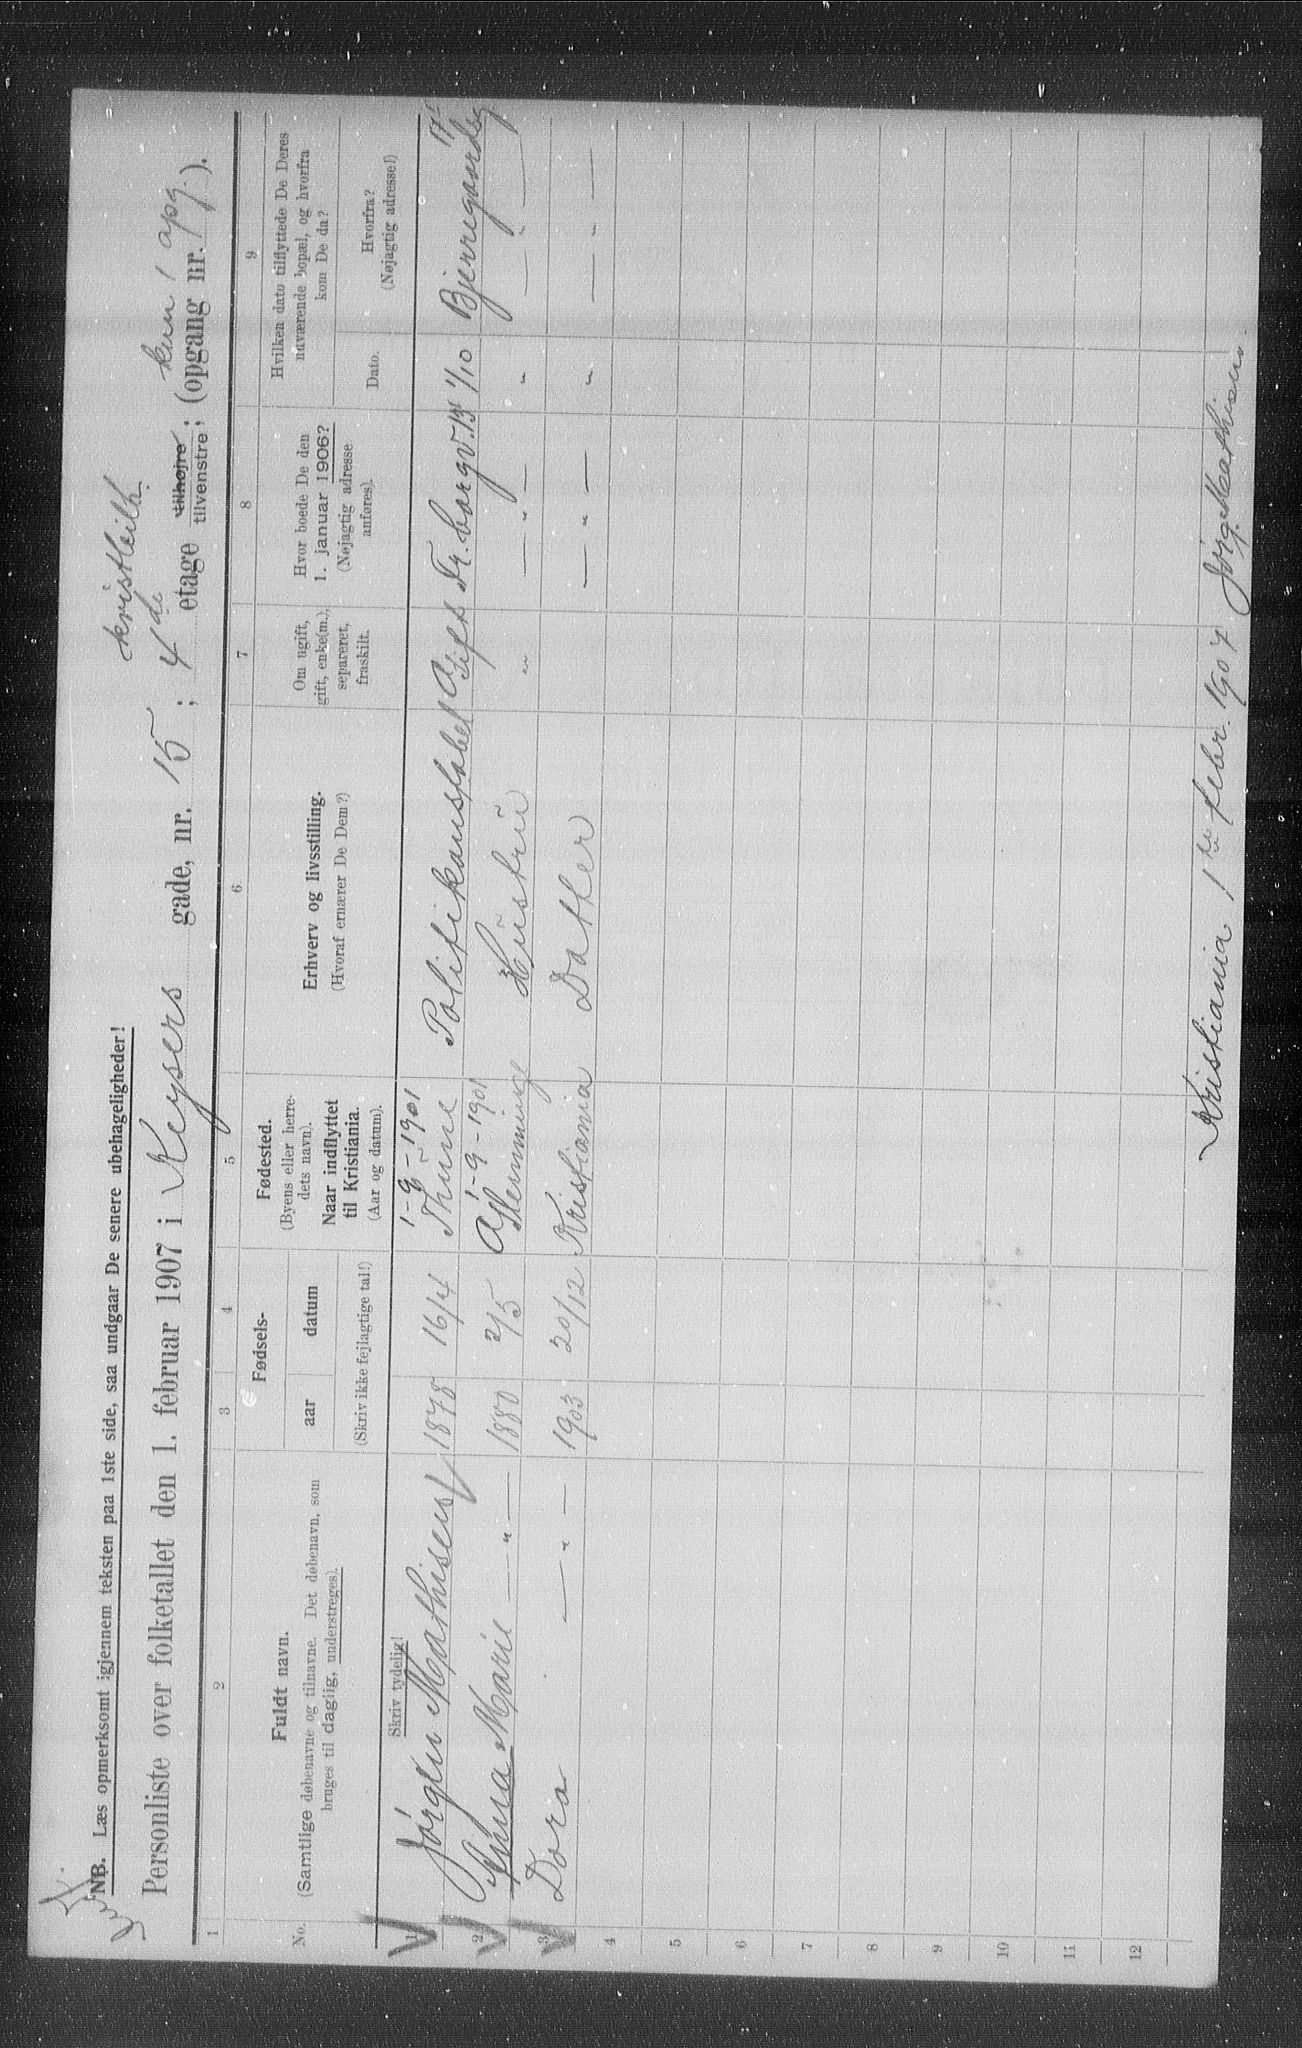 NB. Læs opmerksomt igjennem teksten paa 1ste side, saa undgaar De senere ubehageligheder!
Personliste over folketallet den 1. februar 1907 i Keysers gade, nr. 15 ; 4de etage tilhøjre tilvenstre; (opgang nr. kun 1 opg.).
1 2 3 4 5 6 7 8 9
No.
Fuldt navn.
(Samtlige døbenavne og tilnavne. Det døbenavn, som
bruges til daglig, understreges).
Skriv tydelig!
Fødsels-
aar datum
(Skriv ikke fejlagtige tal!)
Fødested.
(Byens eller herre-
dets navn).
Naar indflyttet
til Kristiania.
(Aar og datum).
Erhverv og livsstilling.
(Hvoraf ernærer De Dem?)
Om ugift,
gift, enke(m.),
separeret,
fraskilt.
Hvor boede De den
1. januar 1906?
(Nøjagtig adresse
anføres).
Hvilken dato tilflyttede De Deres
nuværende bopæl, og hvorfra
kom De da?
Dato.
Hvorfra?
(Nøjagtig adresse!)
1-9-1901
1 Jørgen Mathisen 1878 16/4 Thune Politikonstabel Gift 1/10
1-9-1901
2 Marie — " — 1880 2/5 Hüstrü " — " — " — " —
3 Dora — " — 1903 20/12 Kristiania Datter — " — " — " —
4
5
6
7
8
9
10
11
12
Kristiania 1ste febr. 1907 Jørg. Mathisen